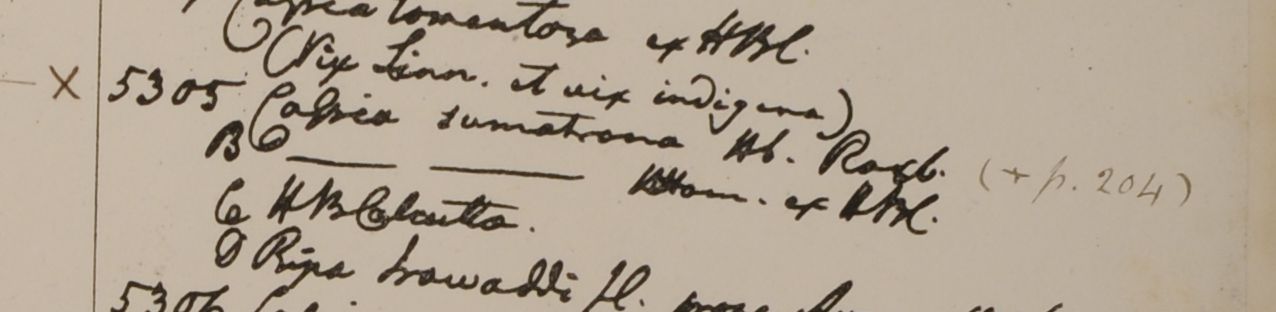 Cassia tomentosa ex HBC.
(Vix Linn. et vix indigena)
X 5305 Cassia sumatrana Hb. Roxb. (+ p. 204)
B ——— ——— Ham. ex HBC.
C HBCalcutta.
D Ripa Irawaddi fl. prope
5306